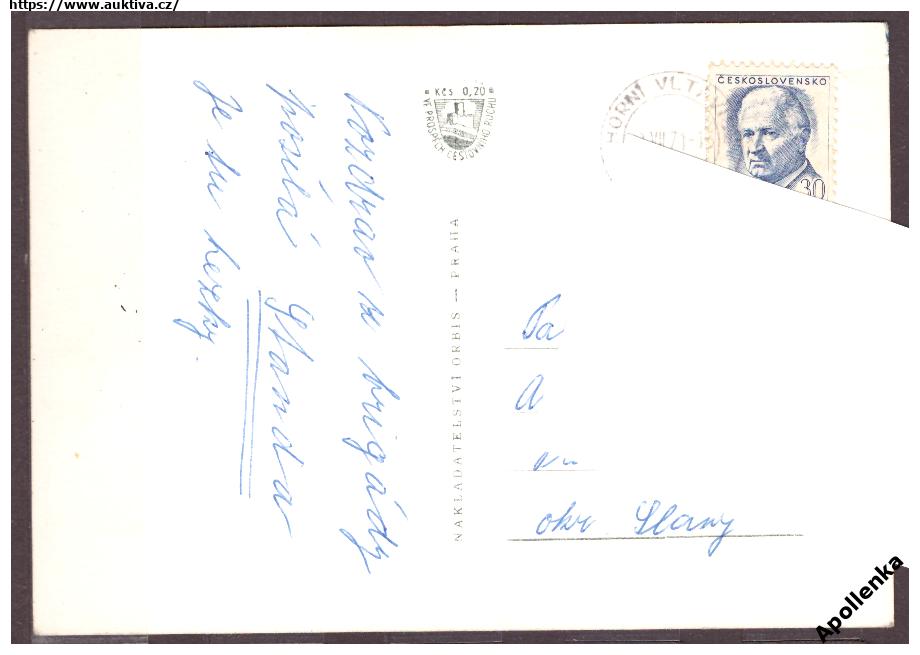 https://www.auktiva.cz/
Pozdrav z brigády
posílá Standa
Je tu hezky.
Kčs 0,20
VE PROSPĚCH CESTOVNÍHO RUCHU
NAKLADATELSTVÍ ORBIS — PRAHA
HORNÍ VLTA
VII.71-1
ČESKOSLOVENSKO
30
Pa
A
okr. Slaný
Apollenka